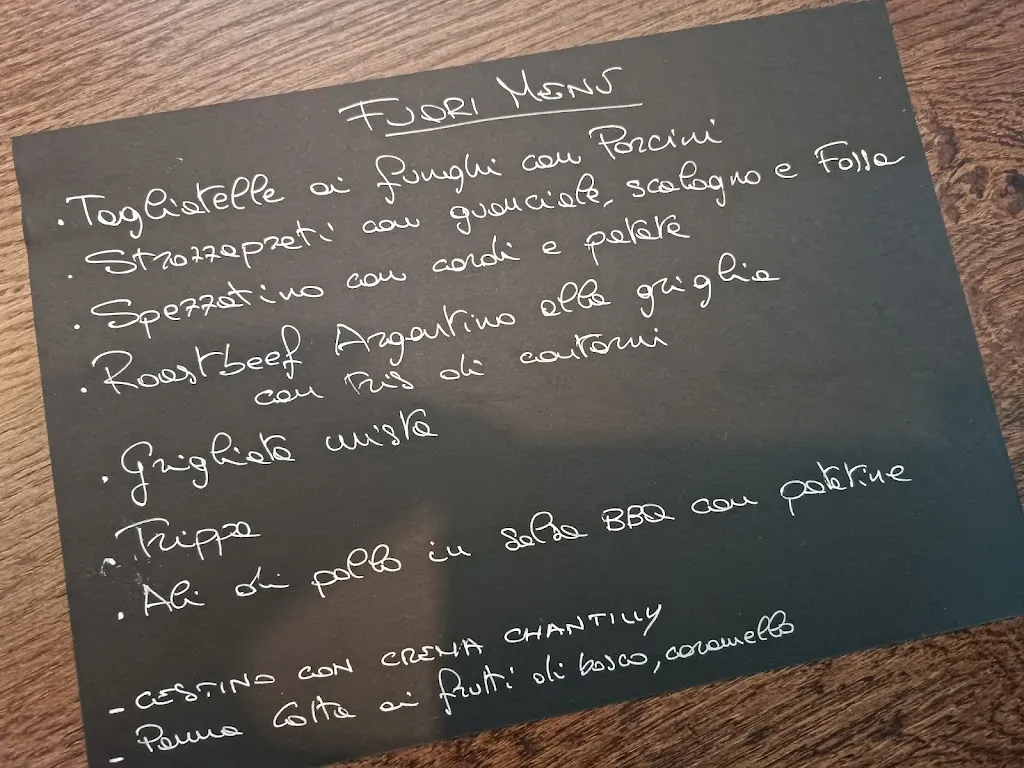 FUORI MENÙ
· Tagliatelle ai funghi con Porcini
· Strozzapreti con guanciale, scalogno e Fossa
· Spezzatino con cardi e patate
· Roastbeef Argentino alla griglia
con tris di contorni
· Grigliata mista
· Trippa
· Ali di pollo in salsa BBQ con patatine
- CESTINO CON CREMA CHANTILLY
- Panna Cotta ai frutti di bosco, caramello